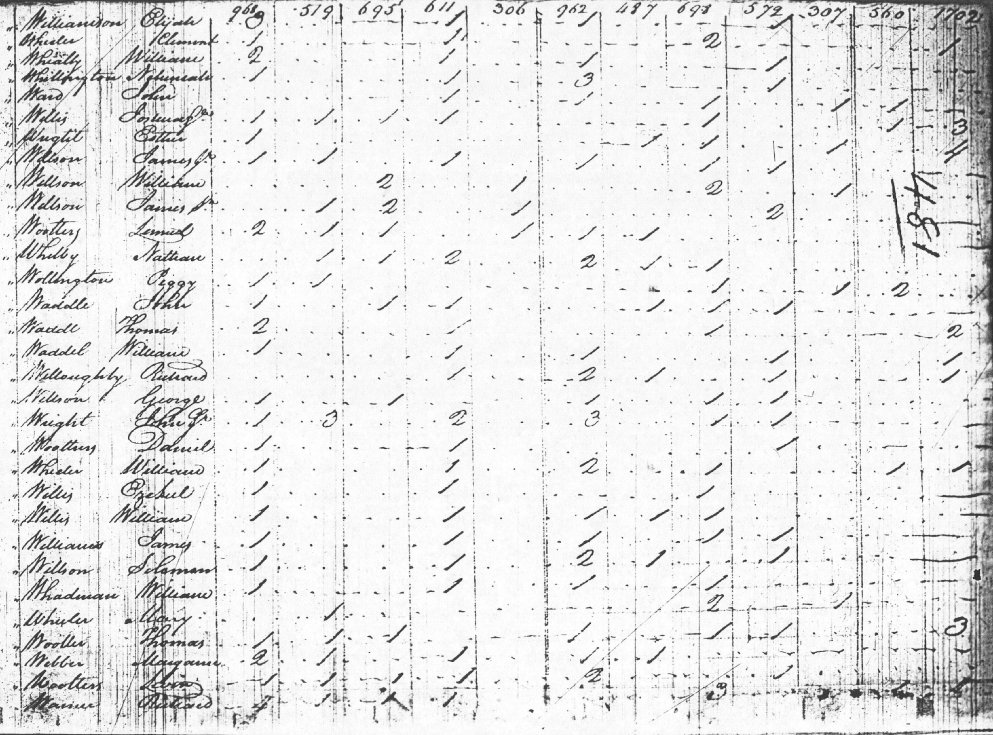 968 519 695 611 306 962 487 698 572 307 560 1702
" Williamson Elijah 3 . . 1 . 1 . 1 1
" Wheeler Clement 1 . . 1 . . . 2
" Wheatly William 2 . . 1 . 1 . . 1 . . 1
" Whittington 1 . . 1 . 3 . . 1
" Ward John . . . 1 . 1 . 1
" Willis 1 1 1 1 . . . 1 . 1 1
" Wright Esther 1 . . . . . 1 1 . . 1 3
" Willson James Jr 1 1 . 1 . 1 . 1 1 1 . 4
" Willson William . . 2 . 1 . . 2 . 1
" Willson James Sr . 1 2 . 1 . . . 2
" Wootters Lemuel 2 1 1 . 1 1 1
" Whitby Nathan . 1 1 2 . 2 1 1
" Wollington Peggy 1 1 . . . . . 1 . 1 2
" Waddle John 1 . 1 1 . . 1 1 1
" Waddle Thomas 2 . . 1 . . . 1 . . . 2
" Waddel William 1 . . 1 . 1 . . 1 . . 1
" Willoughby Richard . . . 1 . 2 1 . 1 . . 1
" Willson George 1 . 1 . . 1 . 1 1
" Wright John Jr 1 3 . 2 . 3 . 1 1
" Wootters Daniel 1 . . 1 . . . . 1
" Wheeler William 1 . . 1 . 2 . 1 . . 1 1
" Willis Ezekiel 1 . . 1 . . . 1
" Willis William 1 . . 1 . 1 1 1
" Williams James 1 . . 1 . 1 . 1 1
" Willson Soloman 1 . . 1 . 2 1 . 1
" Whadman William 1 . . 1 . 1 . 1
" Wheeler Mary . 1 . . . . . 2 . 1
" Wooller Thomas 1 1 1 . . 1 . 1 1 . . 3
" Webber 2 1 . 1 . 1 1
" Wootters 1 1 1 1 . 2 . . 1
Richard 1 1 1 . . . 3
481